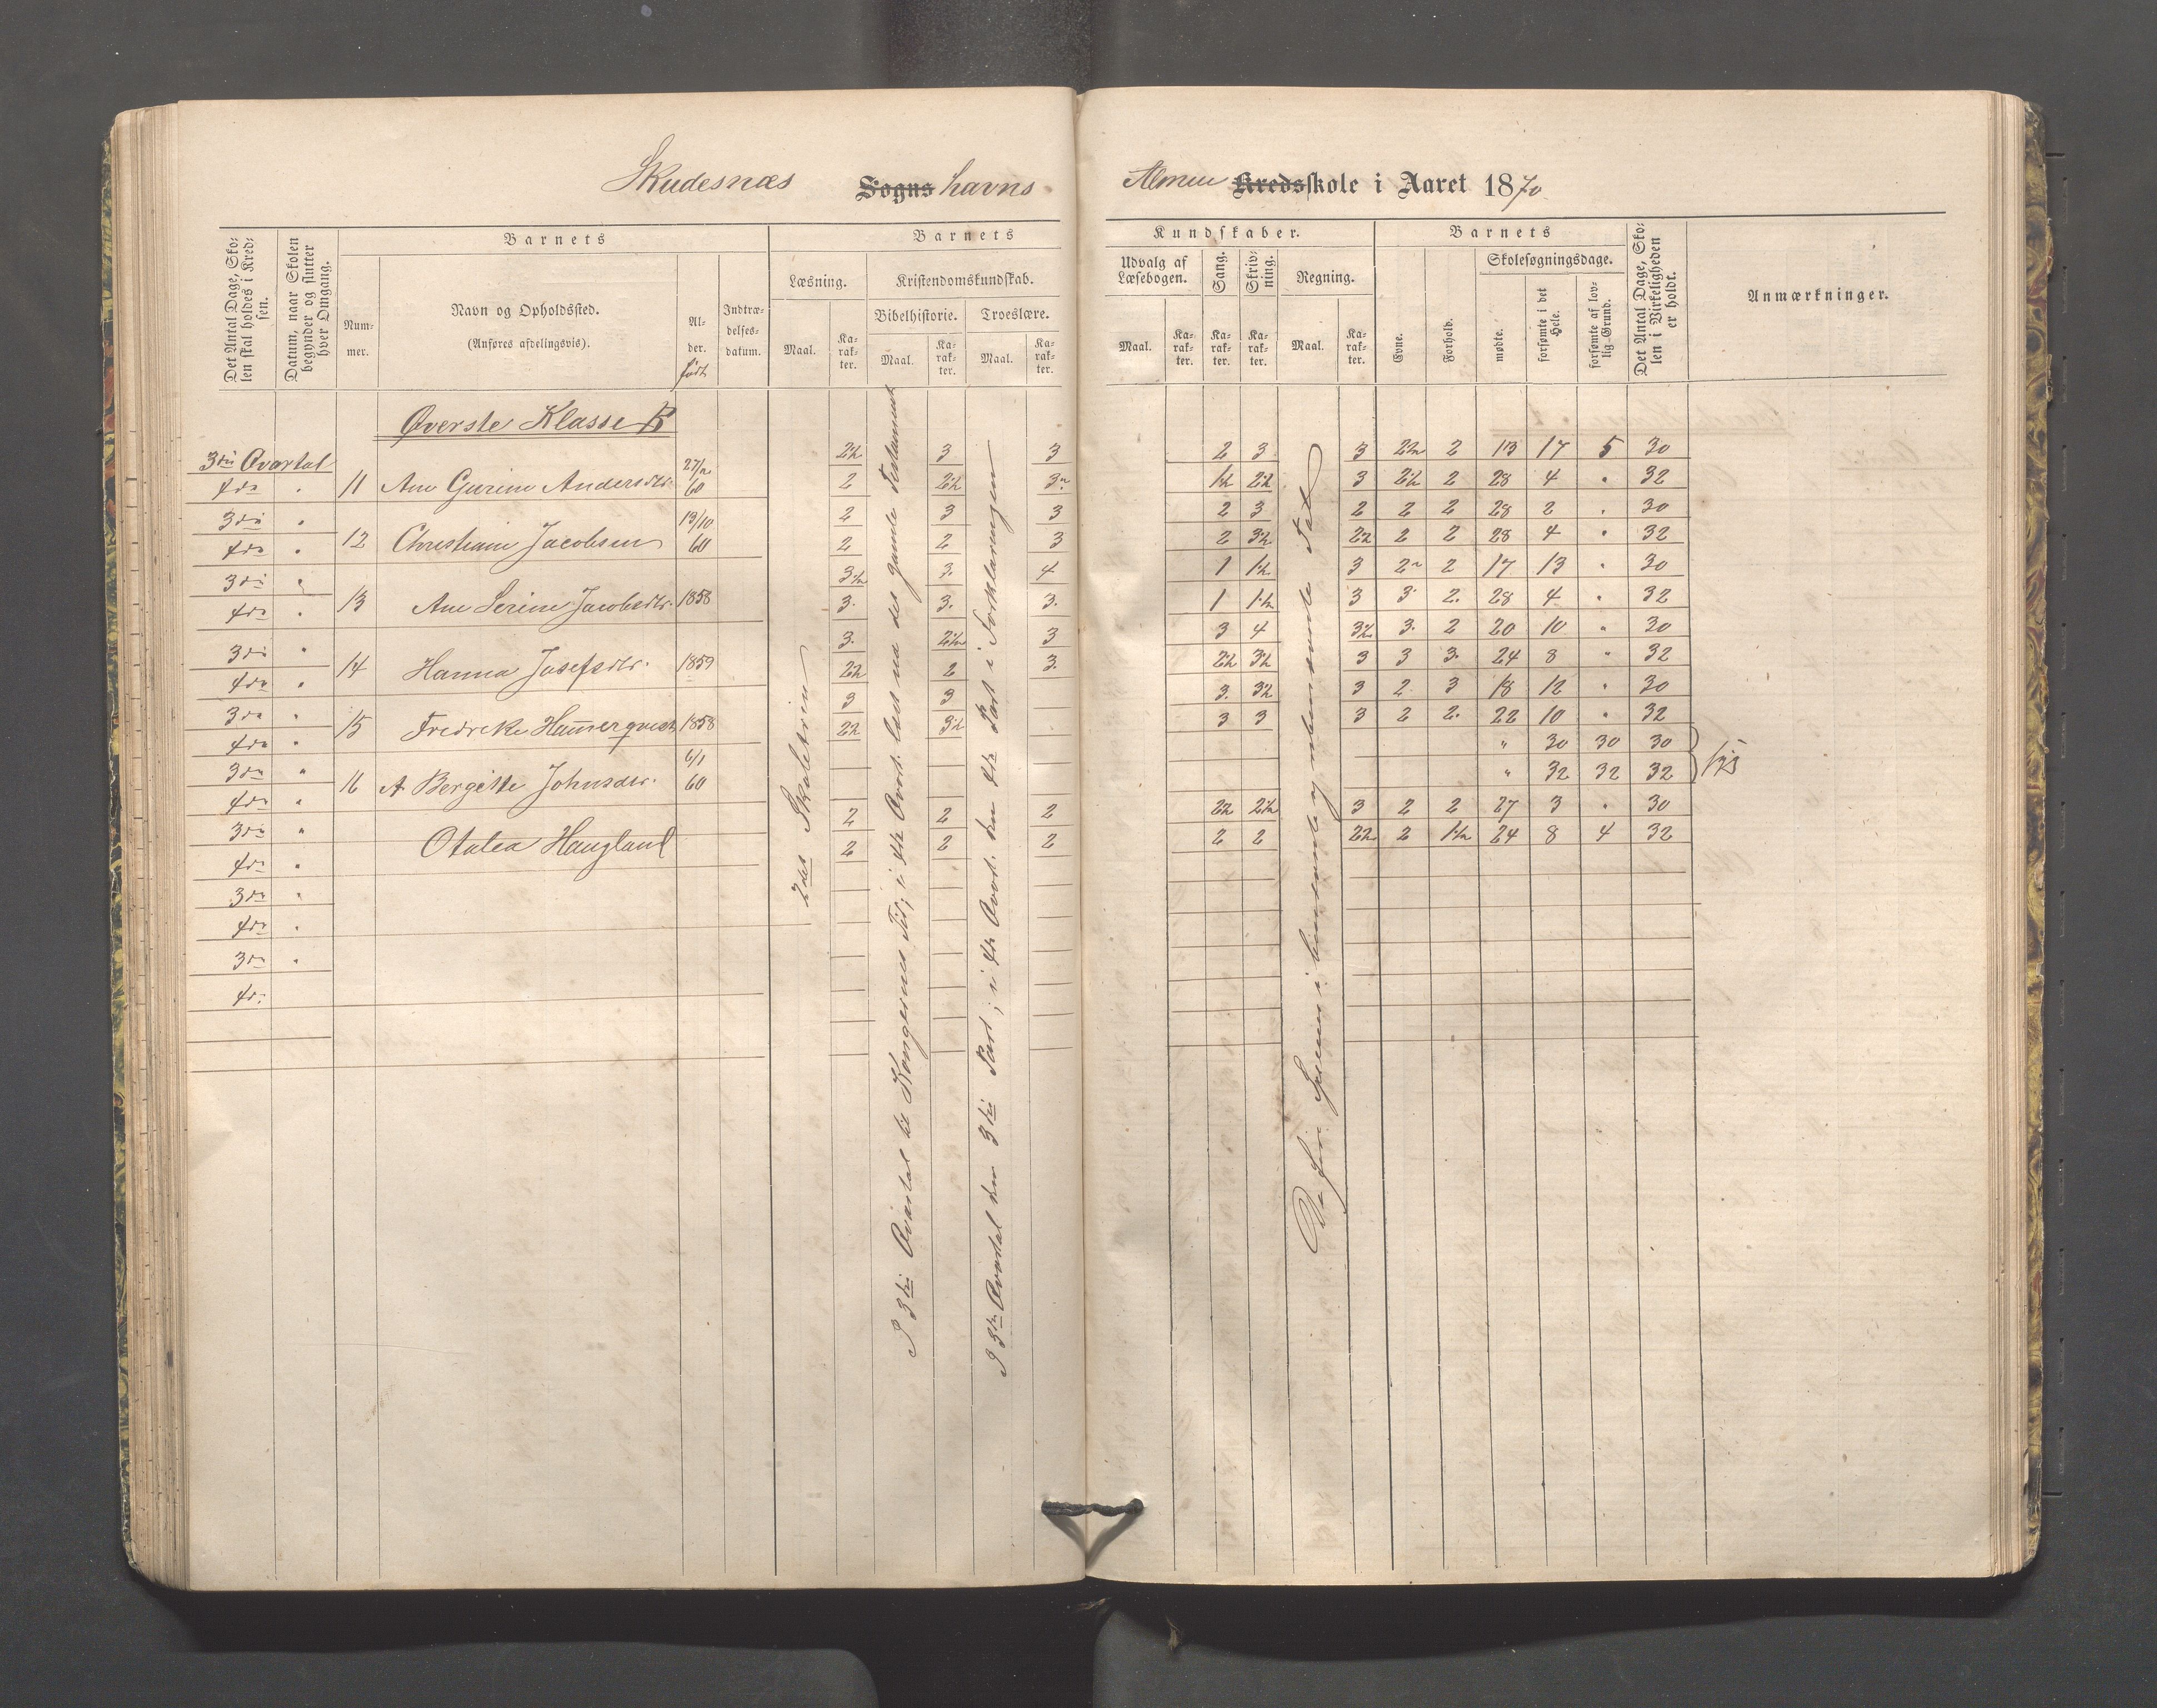 Skudesnæs Sogns havns Almue Kredsskole i Aaret 1870.
Det Antal Dage, Skolen skal holdes i Kredsen.
Datum, naar Skolen begynder og slutter hver Omgang.
Barnets
Nummer.
Navn og Opholdssted.
(Anføres afdelingsvis).
Alder.
født
Indtrædelsesdatum.
Barnets Kundskaber.
Læsning.
Maal.
Karakter.
Kristendomskundskab.
Bibelhistorie.
Maal.
Karakter.
Troeslære.
Maal.
Karakter.
Udvalg af Læsebogen.
Maal.
Karakter.
Sang.
Karakter.
Skrivning.
Karakter.
Regning.
Maal.
Karakter.
Barnets
Evne.
Forhold.
Skolesøgningsdage.
mødte.
forsømte i det Hele.
forsømte af lovlig Grund.
Det Antal Dage, Skolen i Virkeligheden er holdt.
Anmærkninger.
Øverste Klasse B
3die Qvartal 2½ 3 3 2 3 3 2½ 2 13 17 5 30
4de " 11 Ane Gurine Andersdtr. 27/12 60 2 2½ 3 1½ 2½ 3 2½ 2 28 4 " 32
3die " 2 3 3 2 3 2 2 2 28 2 " 30
4de " 12 Christiane Jacobsen 13/10 60 2 2 3 2 3½ 2½ 2 2 28 4 " 32
3die " 3½ 3. 4 1 1½ 3 2 2 17 13 " 30
4de " 13 Ane Serine Jacobsdtr. 1858 3. 3. 3. 1 1½ 3 3 2. 28 4 " 32
3die " 3. 2½ 3 3 4 3½ 3. 2 20 10 " 30
4de " 14 Hanna Josefsdtr. 1859 2½ 2 3. 2½ 3½ 3 3 3. 24 8 " 32
3die " 3 3 3. 3½ 3 2 3 18 12 " 30
4de " 15 Fredrike Hammerqvist 1858 2½ 3½ 3 3 3 2 2. 22 10 " 32
3die " " 30 30 30
4de " 16 A Bergitte Johnsdtr. 6/1 60 " 32 32 32
3die " 2 2 2 2½ 2½ 3 2 2 27 3 " 30
4de " Otalea Haugland 2 2 2 2 2 2½ 2 1½ 24 8 4 32
3die "
4de "
3die "
4de
2det Skoletrin
I 3die Qvartal til Kongernes Tid; i 4de Qvart. læst ud det gamle Testament
I 3die Qvartal den 3die Part; i 4de Qvart. den 4de Part i Forklaringen
De fire Species i ubenævnte og eensbenævnte Tal